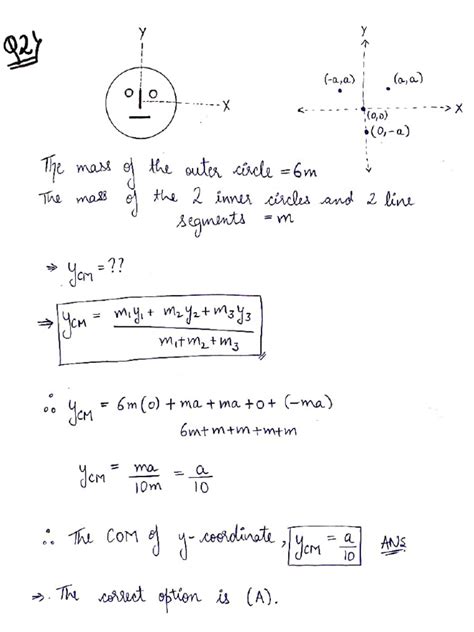 Q24
Y
X
O O
Y
X
(-a,a)
(a,a)
(0,0)
(0,-a)
The mass of the outer circle = 6m
The mass of the 2 inner circles and 2 line
segments = m
⇒ yCM = ??
⇒ yCM = m1y1 + m2y2 + m3y3
m1+m2+m3
∴ yCM = 6m(0) + ma + ma + 0 + (-ma)
6m+m+m+m+m
yCM = ma = a
10m 10
∴ The COM of y-coordinate, yCM = a ANS
10
⇒. The correct option is (A).